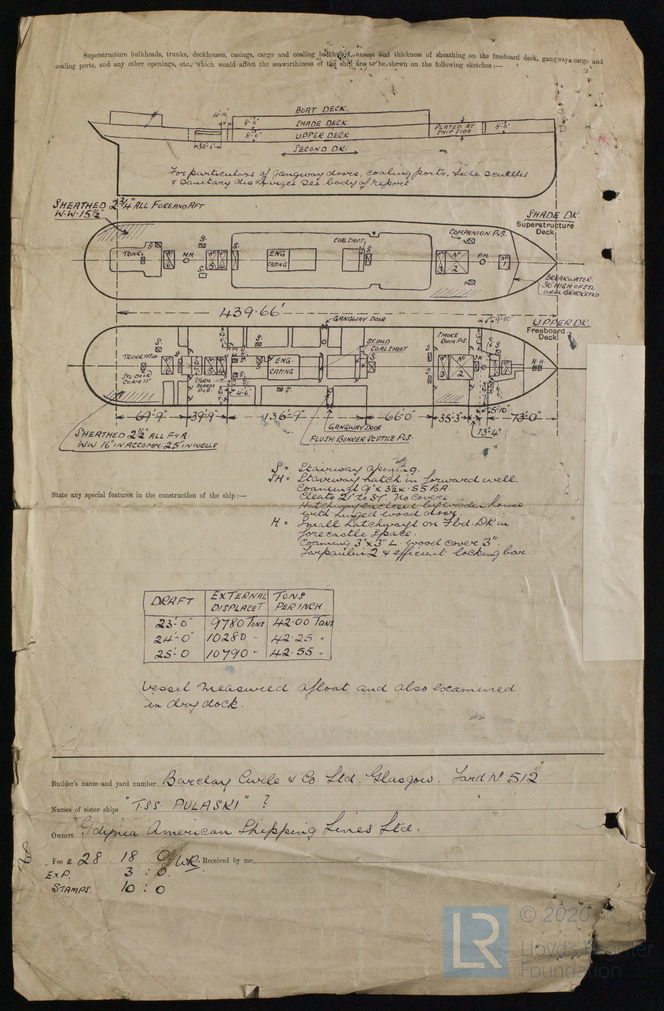 Superstructure bulkheads, trunks, deckhouses, casings, cargo and coaling hatchways, and thickness of sheathing on the freeboard deck, gangway, cargo and
coaling ports, and any other openings, etc., which would affect the seaworthiness of the ship are to be shewn on the following sketches:—
BOAT DECK.
SHADE DECK
UPPER DECK
SECOND DK.
PLATED AT
SHIP SIDE
8'-6"
30'-1"
For particulars of gangway doors, coaling ports, side scuttles
& sanitary discharges see body of report
SHEATHED 2¾" ALL FORE AND AFT
W.W. 15½
SHADE DK.
Superstructure
Deck
TRUNK
M.H.
ENG
CASING
COAL SHOOT
COMPANION P&S.
BREAKWATER
30" HIGH OF STL
WELL BRACKETED
439.66'
GANGWAY DOOR
UPPER DK.
Freeboard
Deck
ENG-
CASING
COALSHOOT
SMOKE
ROOM P&S
69'-9"
39'-9"
136'-9"
66'0"
35'-3"
5'-10"
73'-0"
13'-4"
GANGWAY DOOR
FLUSH BUNKER SCUTTLE P&S.
SHEATHED 2½" ALL F&A
WW 16" IN ACCOM. 25" IN WELLS
S = Stairway opening.
SH = Stairway hatch in forward well.
Coamings 9" x 3½ x .55 BA
Cleats 21" to 31". No covers
Hatchway enclosed by wooden house
with hinged wood door.
H = Small hatchways on Fbd. Dk in
forecastle space.
Coaming 3" x 3" L. Wood cover 3".
Tarpaulins 2 & efficient locking bar.
State any special features in the construction of the ship:—
DRAFT EXTERNAL DISPLACET TONS PER INCH
23'-0" 9780 TONS 42.00 TONS
24'-0" 10280 " 42.25 "
25'-0 10790 " 42.55 "
Vessel measured afloat and also examined
in dry dock.
Builder's name and yard number Barclay Curle & Co Ltd. Glasgow. Yard No 512
Names of sister ships "TSS PULASKI" ?
Owners Gdynia American Shipping Lines Ltd.
Fee £ 28 : 18 : 0 WR. Received by me,
EXP. 3 : 0.
STAMPS. 10 : 0
LR
© 2020
Lloyd's Register
Foundation